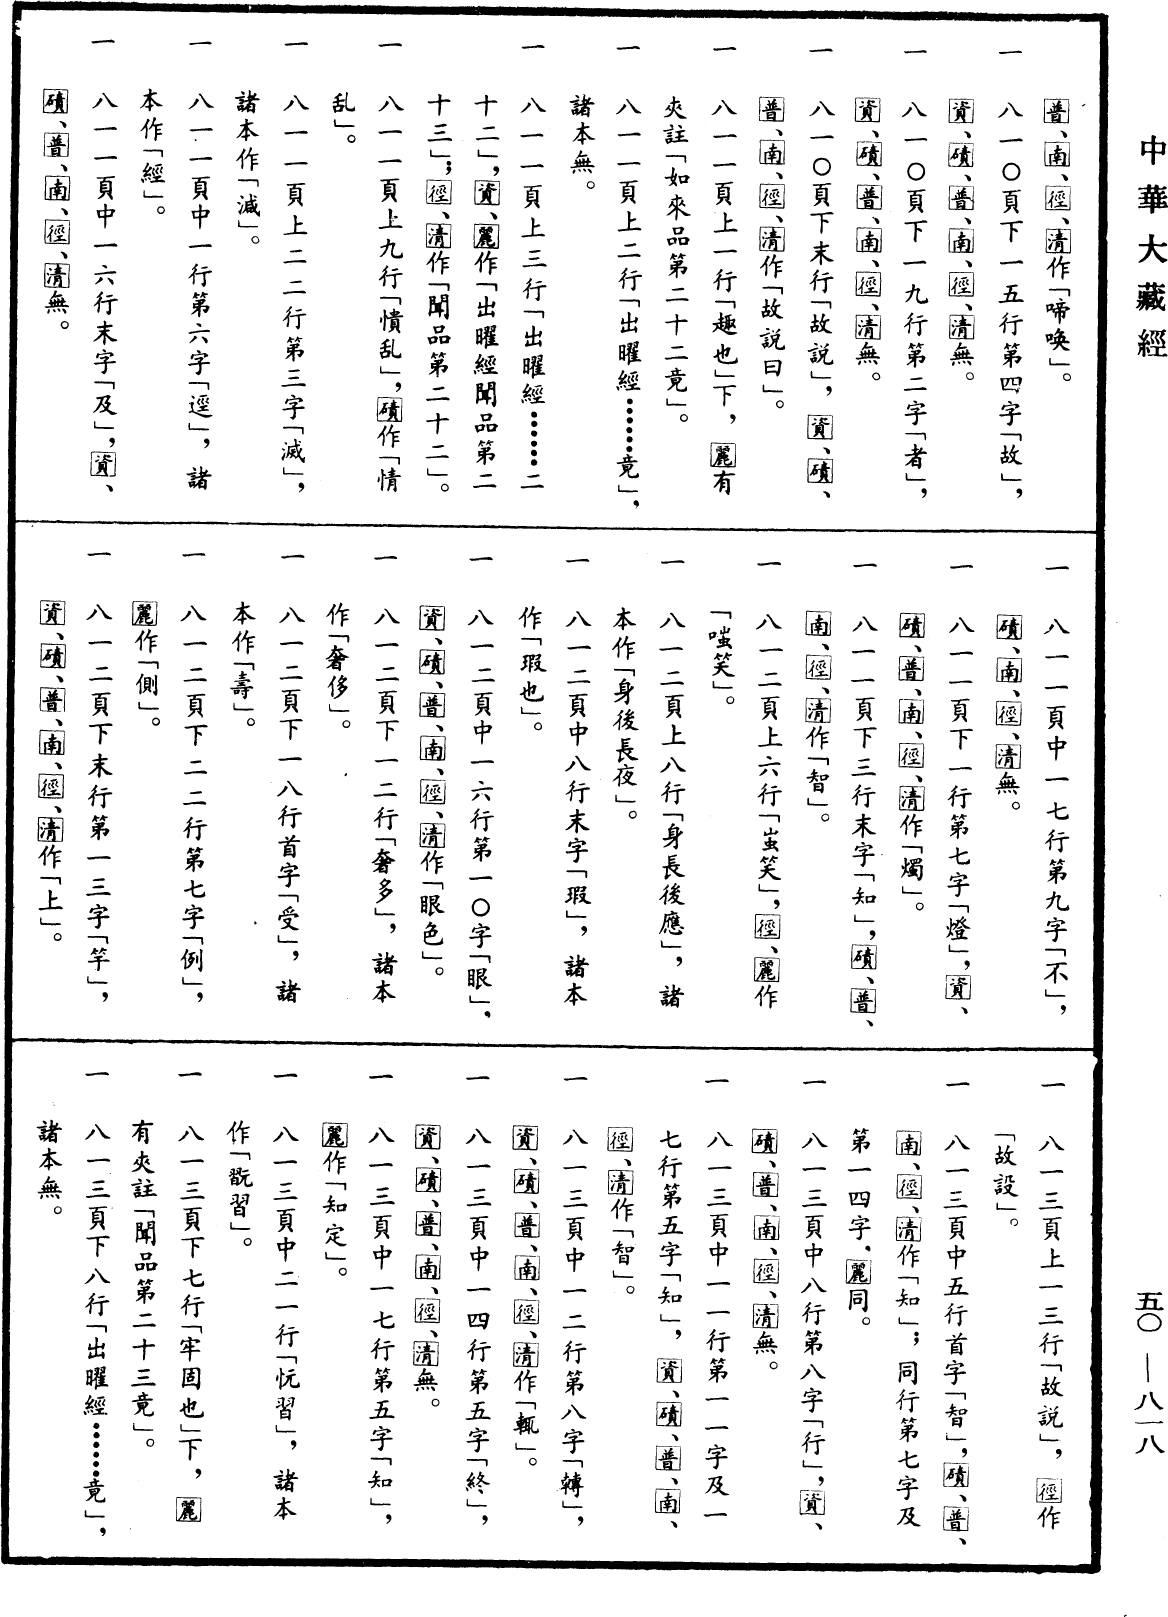 中華大藏經
普、南、徑、清作「啼喚」。
一 八一〇頁下一五行第四字「故」，
資、磧、普、南、徑、清無。
一 八一〇頁下一九行第二字「者」，
資、磧、普、南、徑、清無。
一 八一〇頁下末行「故説」，資、磧、
普、南、徑、清作「故説曰」。
一 八一一頁上一行「趣也」下，麗有
夾註「如來品第二十二竟」。
一 八一一頁上二行「出曜經……竟」，
諸本無。
一 八一一頁上三行「出曜經……二
十二」，資、麗作「出曜經聞品第二
十三」；徑、清作「聞品第二十二」。
一 八一一頁上九行「憒乱」，磧作「情
乱」。
一 八一一頁上二二行第三字「滅」，
諸本作「減」。
一 八一一頁中一行第六字「逕」，諸
本作「經」。
一 八一一頁中一六行末字「及」，資、
磧、普、南、徑、清無。
一 八一一頁中一七行第九字「不」，
磧、南、徑、清無。
一 八一一頁下一行第七字「燈」，資、
磧、普、南、徑、清作「燭」。
一 八一一頁下三行末字「知」，磧、普、
南、徑、清作「智」。
一 八一二頁上六行「蚩笑」，徑、麗作
「嗤笑」。
一 八一二頁上八行「身長後應」，諸
本作「身後長夜」。
一 八一二頁中八行末字「瑕」，諸本
作「瑕也」。
一 八一二頁中一六行第一〇字「眼」，
資、磧、普、南、徑、清作「眼色」。
一 八一二頁下一二行「奢多」，諸本
作「奢侈」。
一 八一二頁下一八行首字「受」，諸
本作「壽」。
一 八一二頁下二二行第七字「例」，
麗作「側」。
一 八一二頁下末行第一三字「竿」，
資、磧、普、南、徑、清作「上」。
一 八一三頁上一三行「故説」，徑作
「故設」。
一 八一三頁中五行首字「智」，磧、普、
南、徑、清作「知」；同行第七字及
第一四字，麗同。
一 八一三頁中八行第八字「行」，資、
磧、普、南、徑、清無。
一 八一三頁中一一行第一一字及一
七行第五字「知」，資、磧、普、南、
徑、清作「智」。
一 八一三頁中一二行第八字「轉」，
資、磧、普、南、徑、清作「輒」。
一 八一三頁中一四行第五字「終」，
資、磧、普、南、徑、清無。
一 八一三頁中一七行第五字「知」，
麗作「知定」。
一 八一三頁中二一行「忨習」，諸本
作「翫習」。
一 八一三頁下七行「牢固也」下，麗
有夾註「聞品第二十三竟」。
一 八一三頁下八行「出曜經……竟」，
諸本無。
五〇—八一八